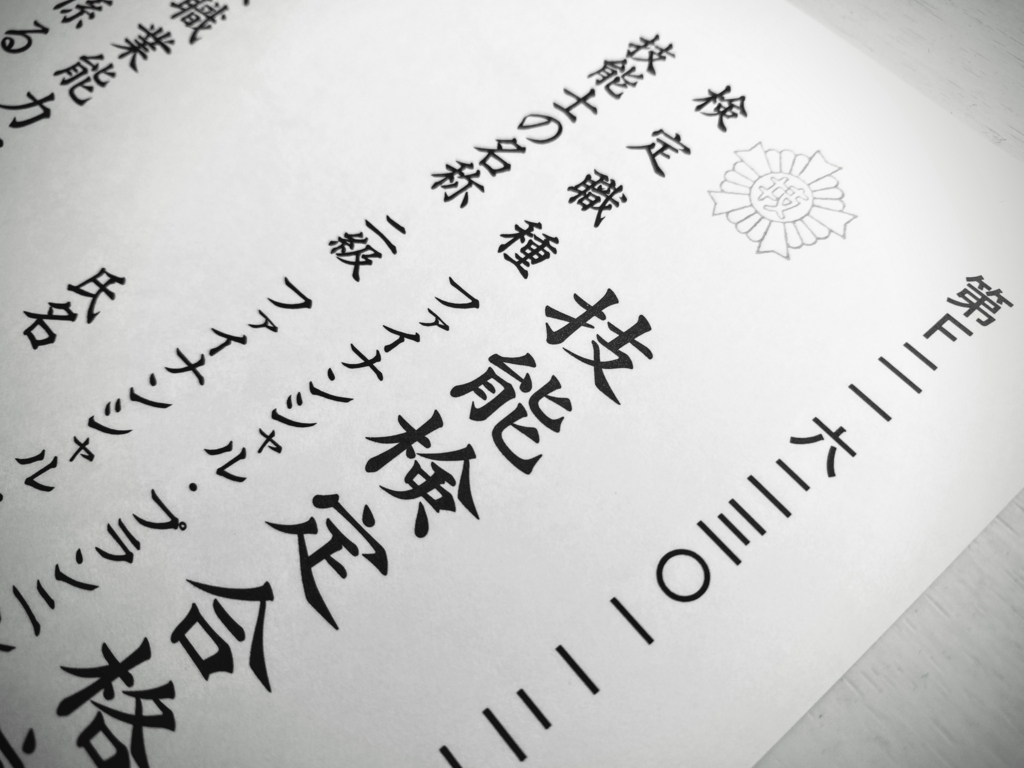 第F二一六二三〇一一二
技能検定合格
検定職種
ファイナンシャル・プランニ
技能士の名称
二級
ファイナンシャル・
氏名
職業能力
係る